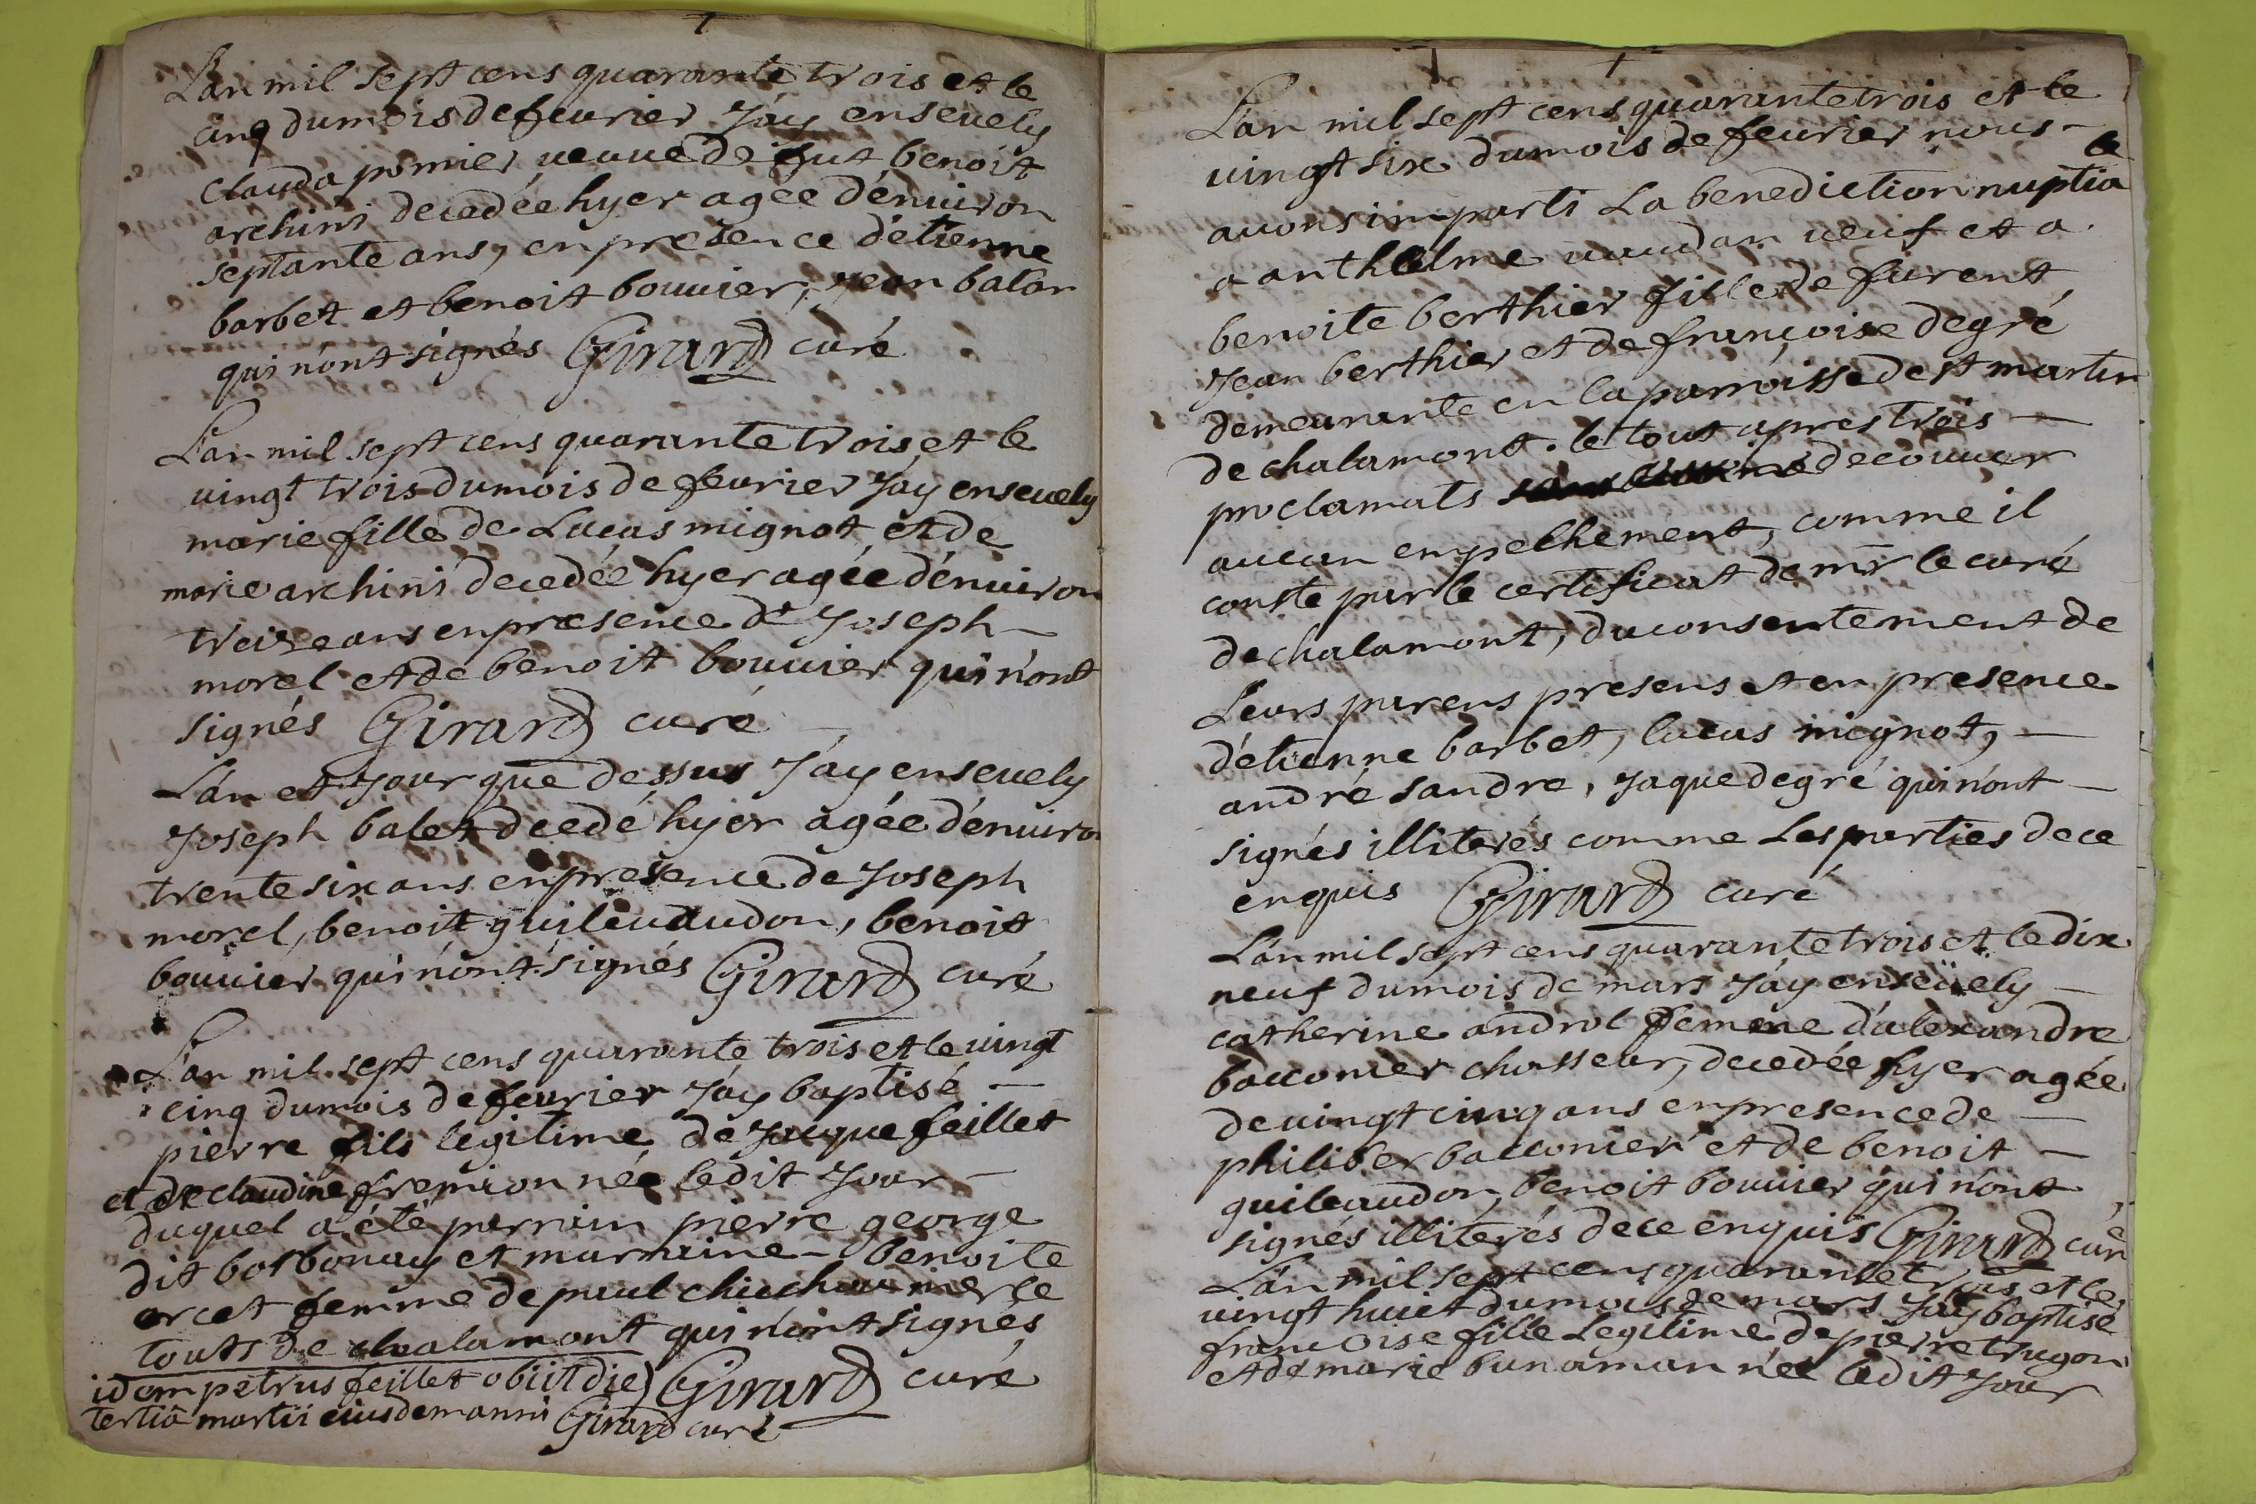 L'an mil sept cens quarante trois et le
cinq du mois de feurier J'ay enseuely
clauda pomier ueuue de fut benoit
archini decedée hyer agée d'enuiron
septante ans, en presence d'etienne
barbet et benoit bouuier, Jean balan
qui n'ont signés Girard curé
L'an mil sept cens quarante trois et le
uingt trois du mois de feurier J'ay enseuely
marie fille de Lucas mignot et de
marie archini decedée hyer agée d'enuiron
treize ans en presence de Joseph
morel et de benoit bouuier qui n'ont
signés Girard curé
L'an et Jour que dessus J'ay enseuely
Joseph balet decedé hyer agée d'enuiron
trente six ans en presence de Joseph
morel, benoit guileuaudon, benoit
bouuier qui n'ont signés Girard curé
L'an mil sept cens quarante trois et le uingt
cinq du mois de feurier J'ay baptisé
pierre fils legitime de Jacque feillet
et de claudine fremion née ledit Jour
duquel a été parrain pierre george
dit borbonay et marraine benoite
arcet femme de paul
touts de chalamont qui n'ont signés
idem petrus feillet obiit die) Girard curé
tertiâ martii eiusdem anni Girard curé
L'an mil sept cens quarante trois et le
uingt six du mois de feurier nous
auons imparti La benediction nuptia le
a anthelme uaudan ueuf et a
benoite berthier fille de furent
Jean berthier et de françoise degré
demeurante en la parroisse de st martin
de chalamont. le tout apres trois
proclamats decouuer
aucun empechement, comme il
conste par le certificat de mr le curé
de chalamont, du consentement de
Leurs parens presens et en presence
d'etienne barbet, lucas mignot,
andré sandre, Jaque degré qui n'ont
signés illiterés comme Les parties de ce
enquis Girard curé
L'an mil sept cens quarante trois et le dix
neuf du mois de mars J'ay enseüely
catherine androl femme d'alexandre
bacconier chasseur, decedée hyer agée
de uingt cinq ans en presence de
philiber bacconier et de benoit
guileaudon, benoit bouuier qui n'ont
signés illiterés de ce enquis Girard curé
L'an mil sept cens quarante trois et le
uingt huict du mois de mars J'ay baptisé
françoise fille Legitime de pierre trugon
et de marie bunaman née ledit Jour